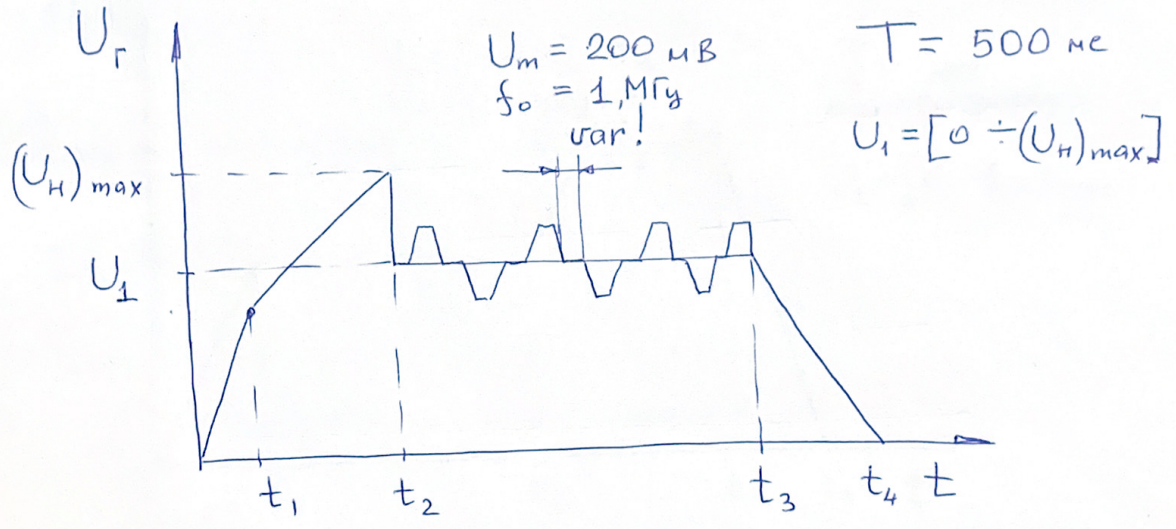 Uг
Um = 200 мВ
f₀ = 1, МГц
var!
T = 500 мс
U₁ = [0 ÷ (Uн)max]
(Uн)max
U₁
t₁
t₂
t₃
t₄
t